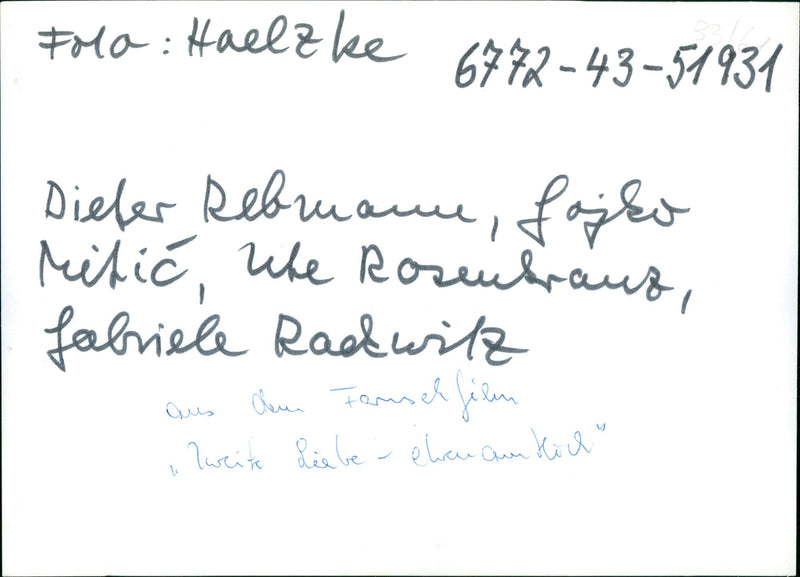 Foto: Haelzke
6772-43-51931
Dieter Rebmann, Gojko
Mitić, Ute Rosenbranz,
Gabriele Radewitz
aus dem Fernsehfilm
„Zweite Liebe - ehrenamtlich"